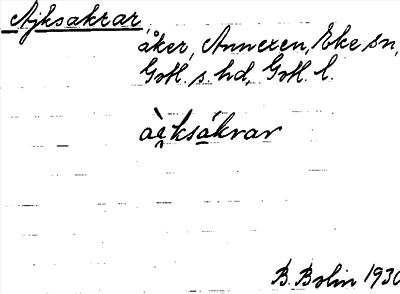 Ajksakrar,
åker, Annexen, Eke sn,
Gotl. s. hd, Gotl. l.
ài̯ksákrar
B. Bolin 1930